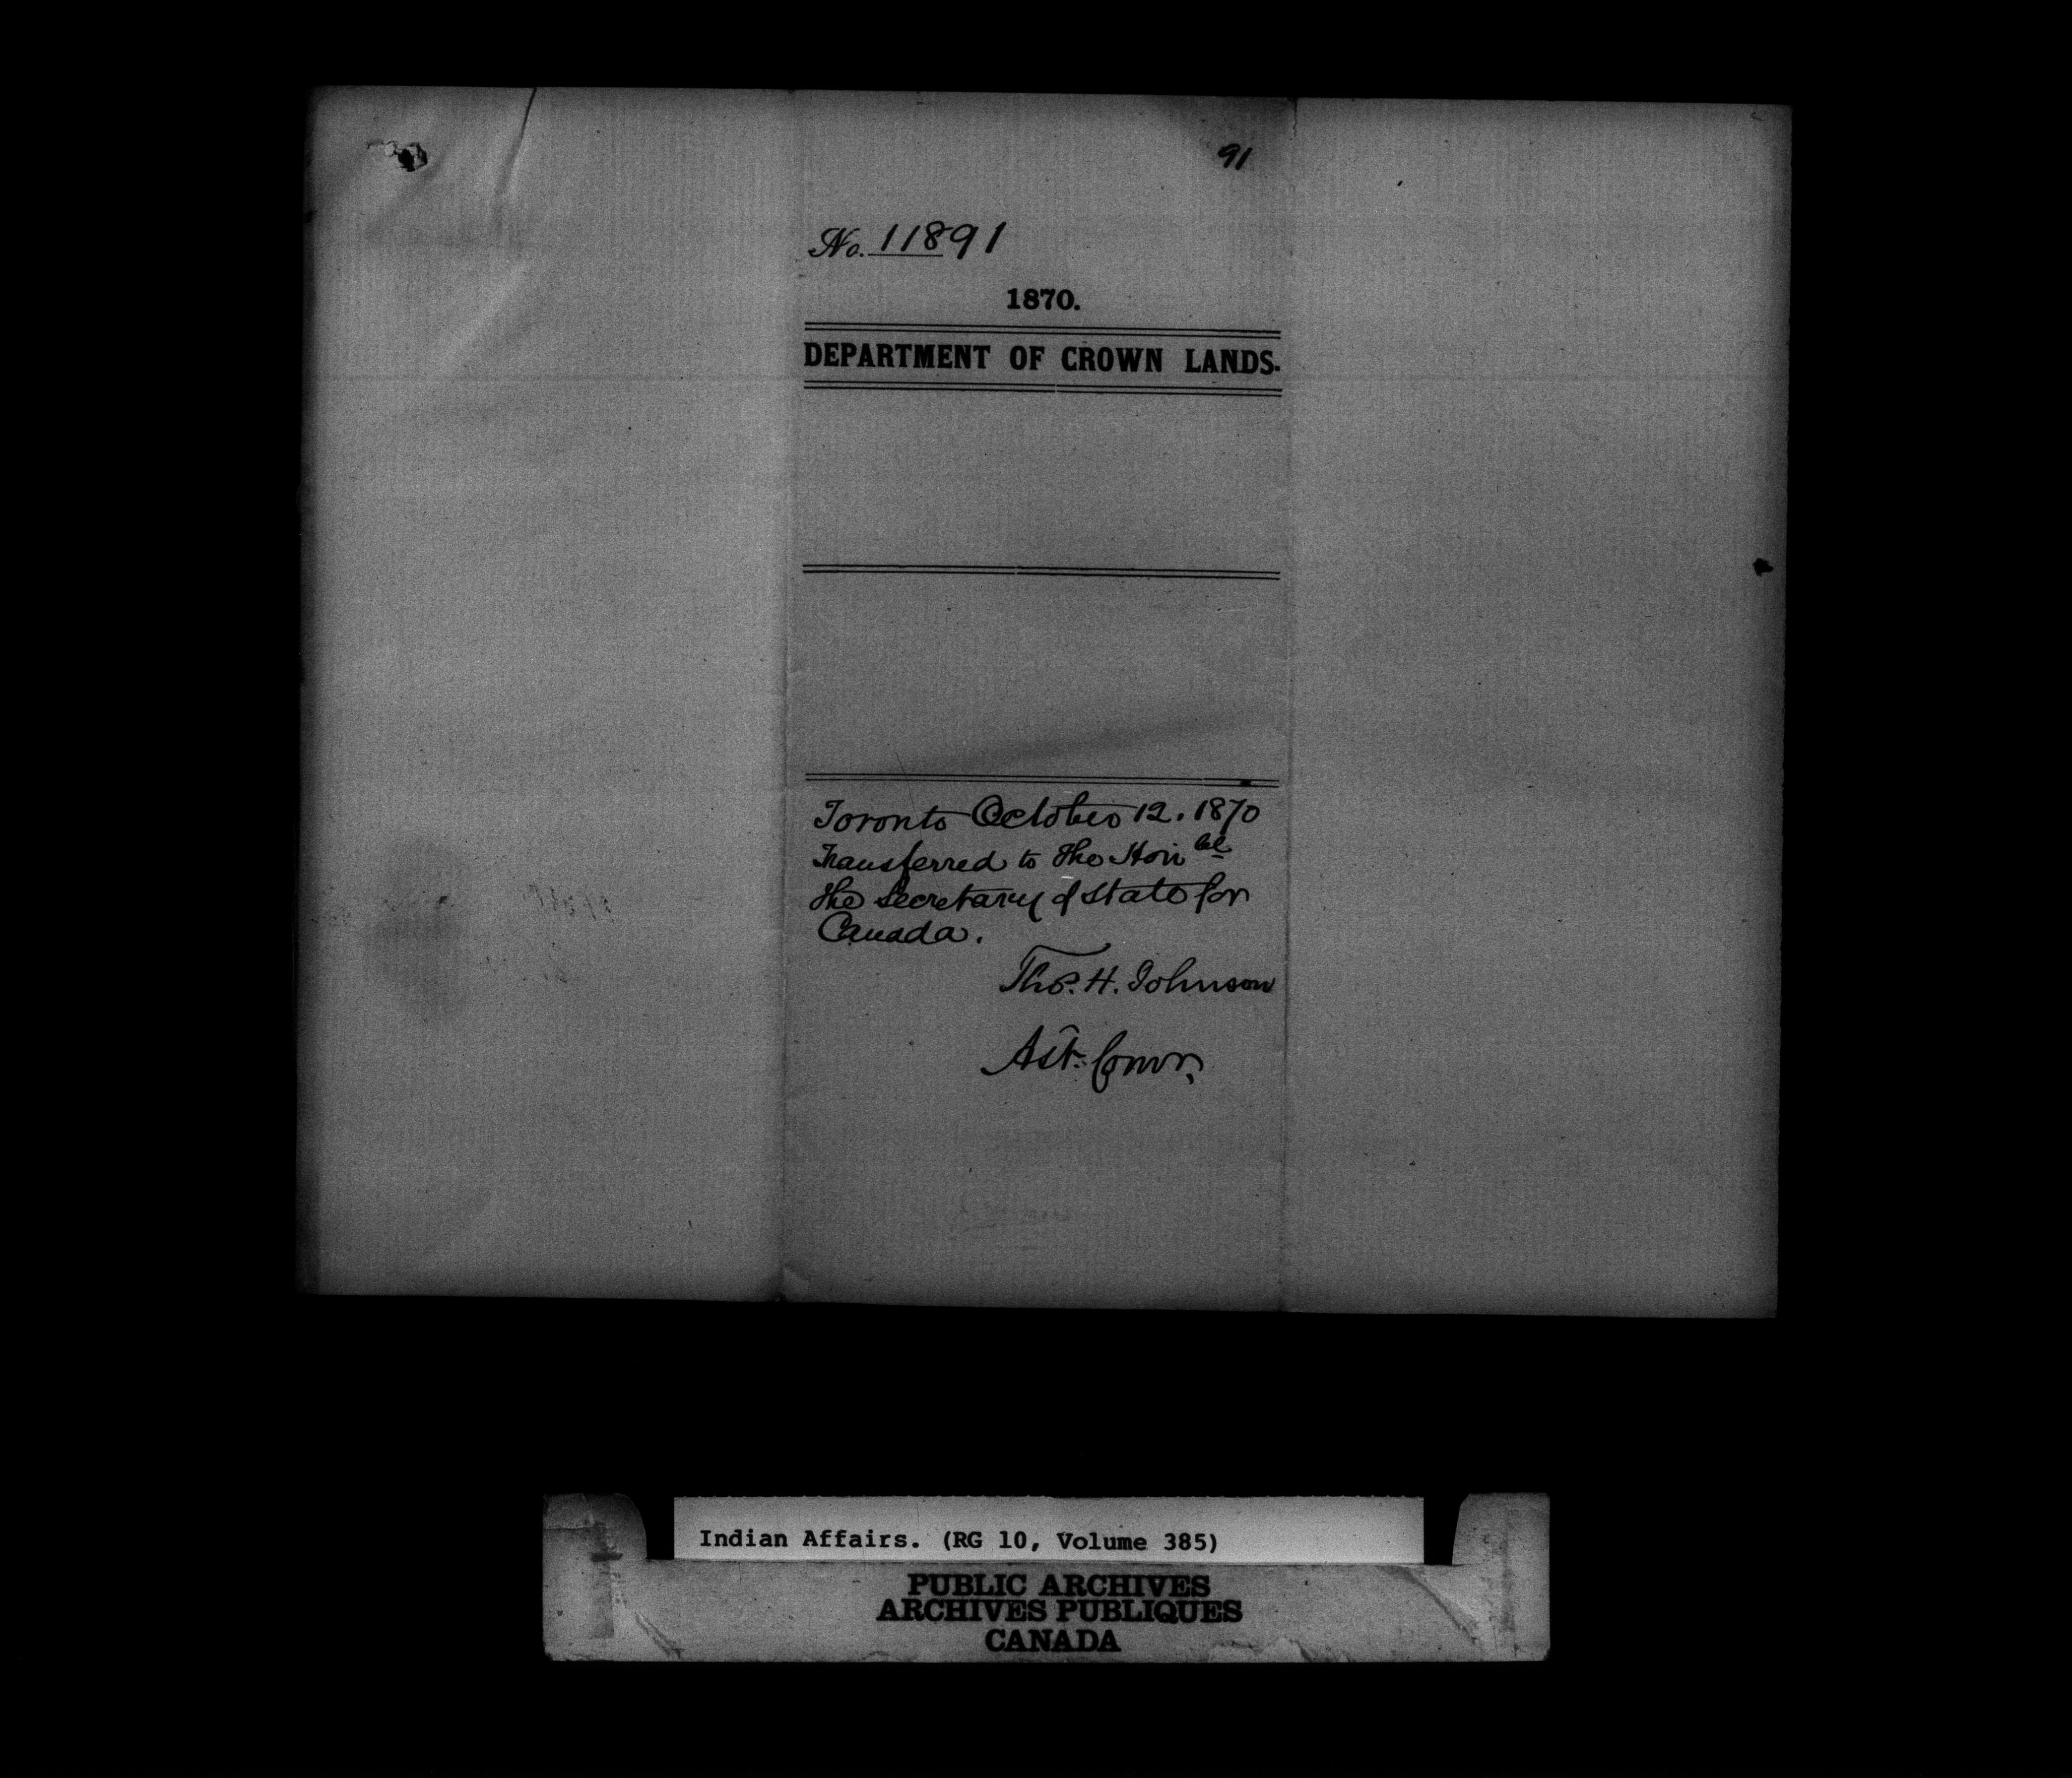 91
No. 11891
1870.
DEPARTMENT OF CROWN LANDS.
Toronto October 12. 1870
Transferred to the Hon ble
the Secretary of State for
Canada.
Tho. H. Johnson
Ast. Comr.
Indian Affairs. (RG 10, Volume 385)
PUBLIC ARCHIVES
ARCHIVES PUBLIQUES
CANADA